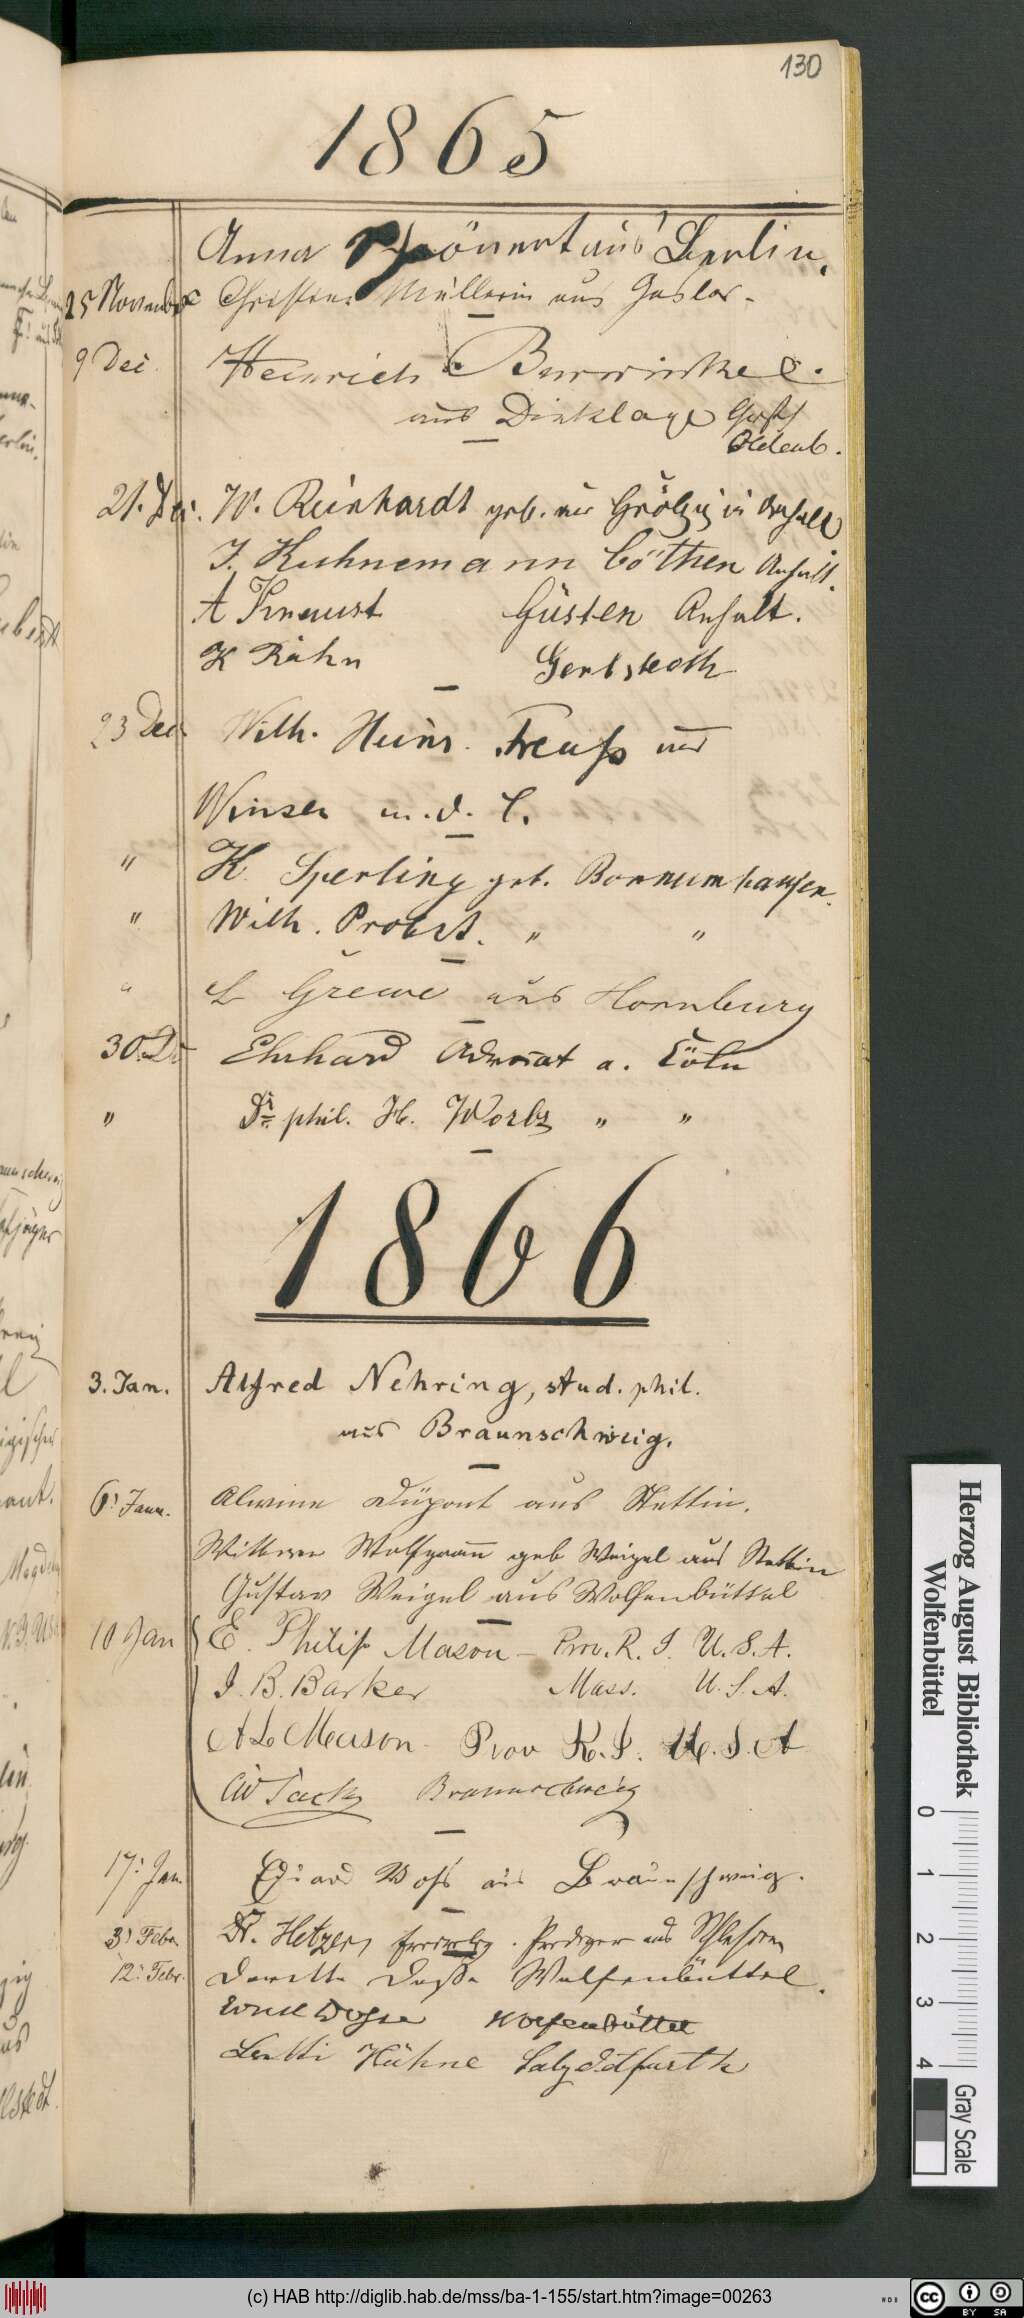 130
1865
Anna aus Berlin.
25 November Christine Müllerin aus Goslar.
9 Dec. Heinrich Burwinkel.
aus Dinklage Grßh
Oldenb.
21. Dec. W. Reinhardt geb. aus Gröbzig in Anhalt
J. Kuhnemann Cöthen Anhalt.
A Knaust Güsten Anhalt.
K Rähn Gerbstedt
23 Dec. Wilh. Heinr. Freuß aus
Winsen a. d. L.
" H. Sperling geb. Bornumhausen.
" Wilh. Probst. " "
" L Grewe aus Hornburg
30. Dc Ehrhard Advocat a. Cöln
" Dr. phil. H. " "
1866
3. Jan. Alfred Nehring, stud. phil.
aus Braunschweig.
6t Janu. Alwine Düpont aus Stettin.
Wittwe Wolfgramm geb Weigel aus Stettin
Gustav Weigel aus Wolfenbüttel
10 Jan E. Philip Mason - Prov. R. I. U. S. A.
J. B. Barker Mass. U. S. A.
A L Mason - Prov R. I. U. S. A
AW Tack Braunschweig
17t Jan. Eduard Voß aus Braunschweig.
3t Febr. Dr. Hetzer, Prediger aus Schlesien
12t Febr. Dorette Dosse Wolfenbüttel.
Ernst Dosse Wolfenbüttel
Lutti Hühne Salzdetfurth
Herzog August Bibliothek
Wolfenbüttel
0 1 2 3 4
Gray Scale
(c) HAB http://diglib.hab.de/mss/ba-1-155/start.htm?image=00263
cc BY SA